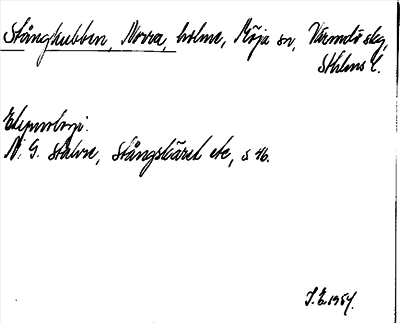 Stångkubben, Norra, holme, Möja sn, Värmdö skg,
Sthlms l.
Etymologi.
N. G. Stahre, Stångskäret etc, s 46.
J.E. 1954.